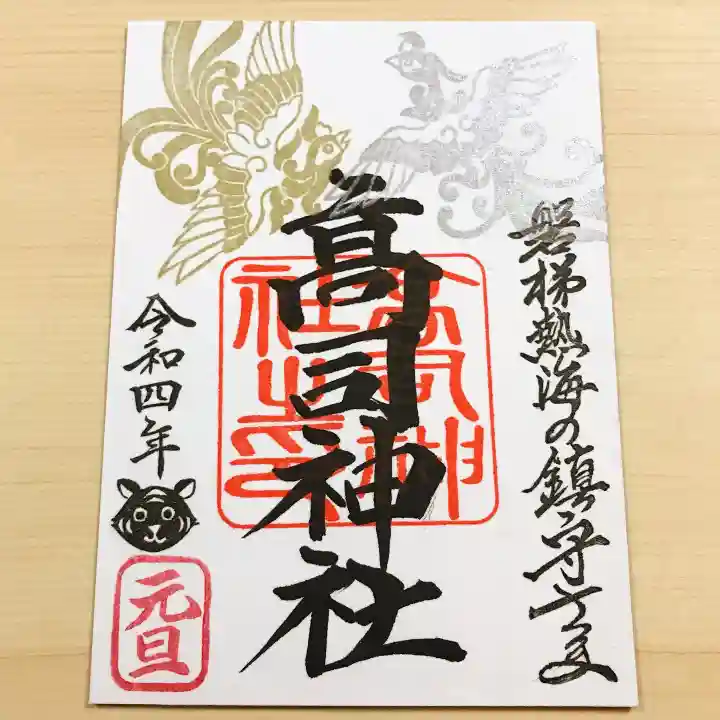 磐梯熱海の鎮守さま
髙司神社
高司神社之印
令和四年
元旦